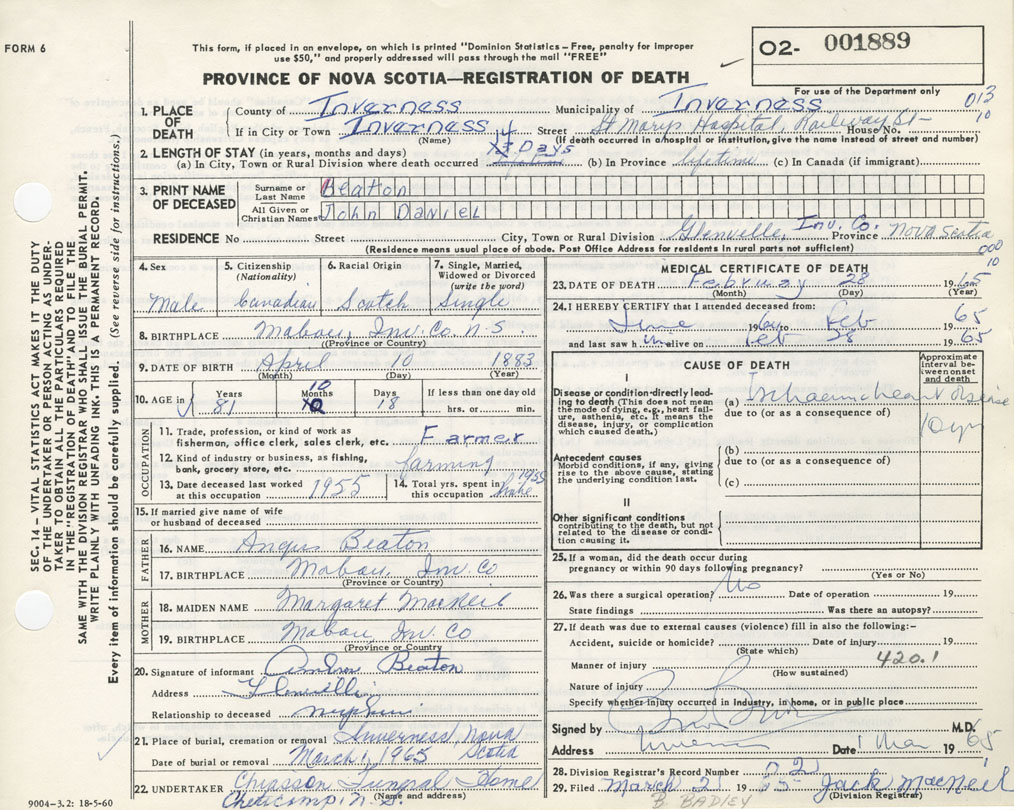 FORM 6
This form, if placed in an envelope, on which is printed "Dominion Statistics – Free, penalty for improper
use $50," and properly addressed will pass through the mail "FREE"
PROVINCE OF NOVA SCOTIA—REGISTRATION OF DEATH
O2- 001889
For use of the Department only
013
10
1. PLACE OF DEATH
County of Inverness Municipality of Inverness
If in City or Town Inverness Street St Marys Hospital, Railway St- House No.
(Name) (If death occurred in a hospital or institution, give the name instead of street and number)
2. LENGTH OF STAY (in years, months and days)
(a) In City, Town or Rural Division where death occurred Days (b) In Province lifetime (c) In Canada (if immigrant)
3. PRINT NAME OF DECEASED
Surname or Last Name Beaton
All Given or Christian Names John Daniel
RESIDENCE No Street City, Town or Rural Division Glenville, Inv. Co. Province Nova Scotia
(Residence means usual place of abode. Post Office Address for residents in rural parts not sufficient)
000
10
4. Sex Male
5. Citizenship (Nationality) Canadian
6. Racial Origin Scotch
7. Single, Married, Widowed or Divorced (write the word) Single
8. BIRTHPLACE Mabou, Inv. Co. N.S.
(Province or County)
9. DATE OF BIRTH April 10 1883
(Month) (Day) (Year)
10. AGE in Years 81 Months 10 Days 18 If less than one day old hrs. or min.
OCCUPATION
11. Trade, profession, or kind of work as fisherman, office clerk, sales clerk, etc. Farmer
12. Kind of industry or business, as fishing, bank, grocery store, etc. farming
13. Date deceased last worked at this occupation 1955
14. Total yrs. spent in this occupation 1955
15. If married give name of wife or husband of deceased
FATHER
16. NAME Angus Beaton
17. BIRTHPLACE Mabou, Inv. Co
(Province or County)
MOTHER
18. MAIDEN NAME Margaret MacNeil
19. BIRTHPLACE Mabou, Inv. Co
(Province or County)
20. Signature of informant Beaton
Address Glenville
Relationship to deceased nephew
21. Place of burial, cremation or removal Inverness, Nova Scotia
Date of burial or removal March 1, 1965
22. UNDERTAKER Chiasson Funeral Home
(Name and address)
Cheticamp N.S.
9004-3.2: 18-5-60
MEDICAL CERTIFICATE OF DEATH
23. DATE OF DEATH February 28 1965
(Month) (Day) (Year)
24. I HEREBY CERTIFY that I attended deceased from:
June to Feb 1965
and last saw h alive on Feb 28 1965
CAUSE OF DEATH
Approximate interval between onset and death
I
Disease or condition directly leading to death (This does not mean the mode of dying, e.g., heart failure, asthenia, etc. It means the disease, injury, or complication which caused death.)
(a) Ischaemic heart disease
due to (or as a consequence of)
10 yr
Antecedent causes
Morbid conditions, if any, giving rise to the above cause, stating the underlying condition last.
(b)
due to (or as a consequence of)
(c)
II
Other significant conditions
contributing to the death, but not related to the disease or condition causing it.
25. If a woman, did the death occur during pregnancy or within 90 days following pregnancy?
(Yes or No)
26. Was there a surgical operation? No Date of operation 19
State findings Was there an autopsy?
27. If death was due to external causes (violence) fill in also the following:-
Accident, suicide or homicide? Date of injury 19
(State which)
420.1
Manner of injury
(How sustained)
Nature of injury
Specify whether injury occurred in Industry, in home, or in public place
Signed by M.D.
Address Inverness Date 1 Mar 1965
28. Division Registrar's Record Number 22
29. Filed March 21 1965 Jack MacNeil
(Division Registrar)
B. BADLEY
SEC. 14 – VITAL STATISTICS ACT MAKES IT THE DUTY
OF THE UNDERTAKER OR PERSON ACTING AS UNDER-
TAKER TO OBTAIN ALL THE PARTICULARS REQUIRED
IN THE "REGISTRATION OF DEATH" AND TO FILE THE
SAME WITH THE DIVISION REGISTRAR WHO SHALL ISSUE THE BURIAL PERMIT.
WRITE PLAINLY WITH UNFADING INK. THIS IS A PERMANENT RECORD.
Every item of information should be carefully supplied. (See reverse side for instructions.)